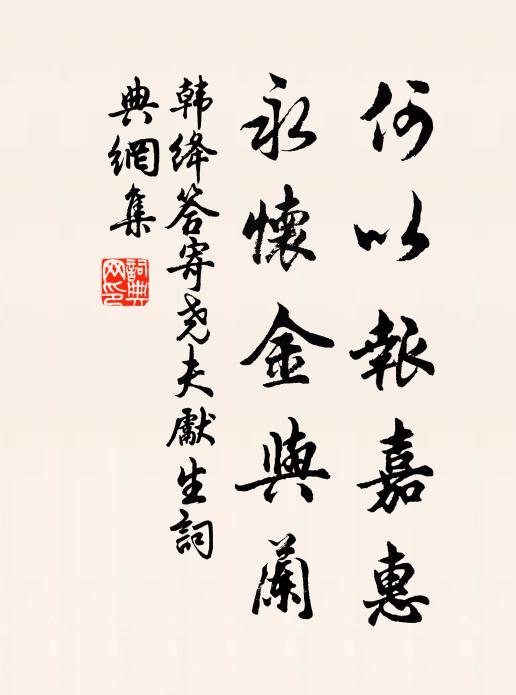 何以報嘉惠
永懷金與蘭
韩绛答寄尧夫獻生詞
典網集
詞典網印